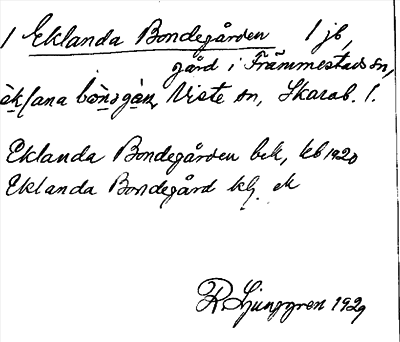 1 Eklanda Bondegården 1 jb,
gård i Främmestads sn,
èklana bònsgàn, Viste sn, Skarab. l.
Eklanda Bondegården bek, kb 1920
Eklanda Bondegård klj. ek
R Ljunggren 1929